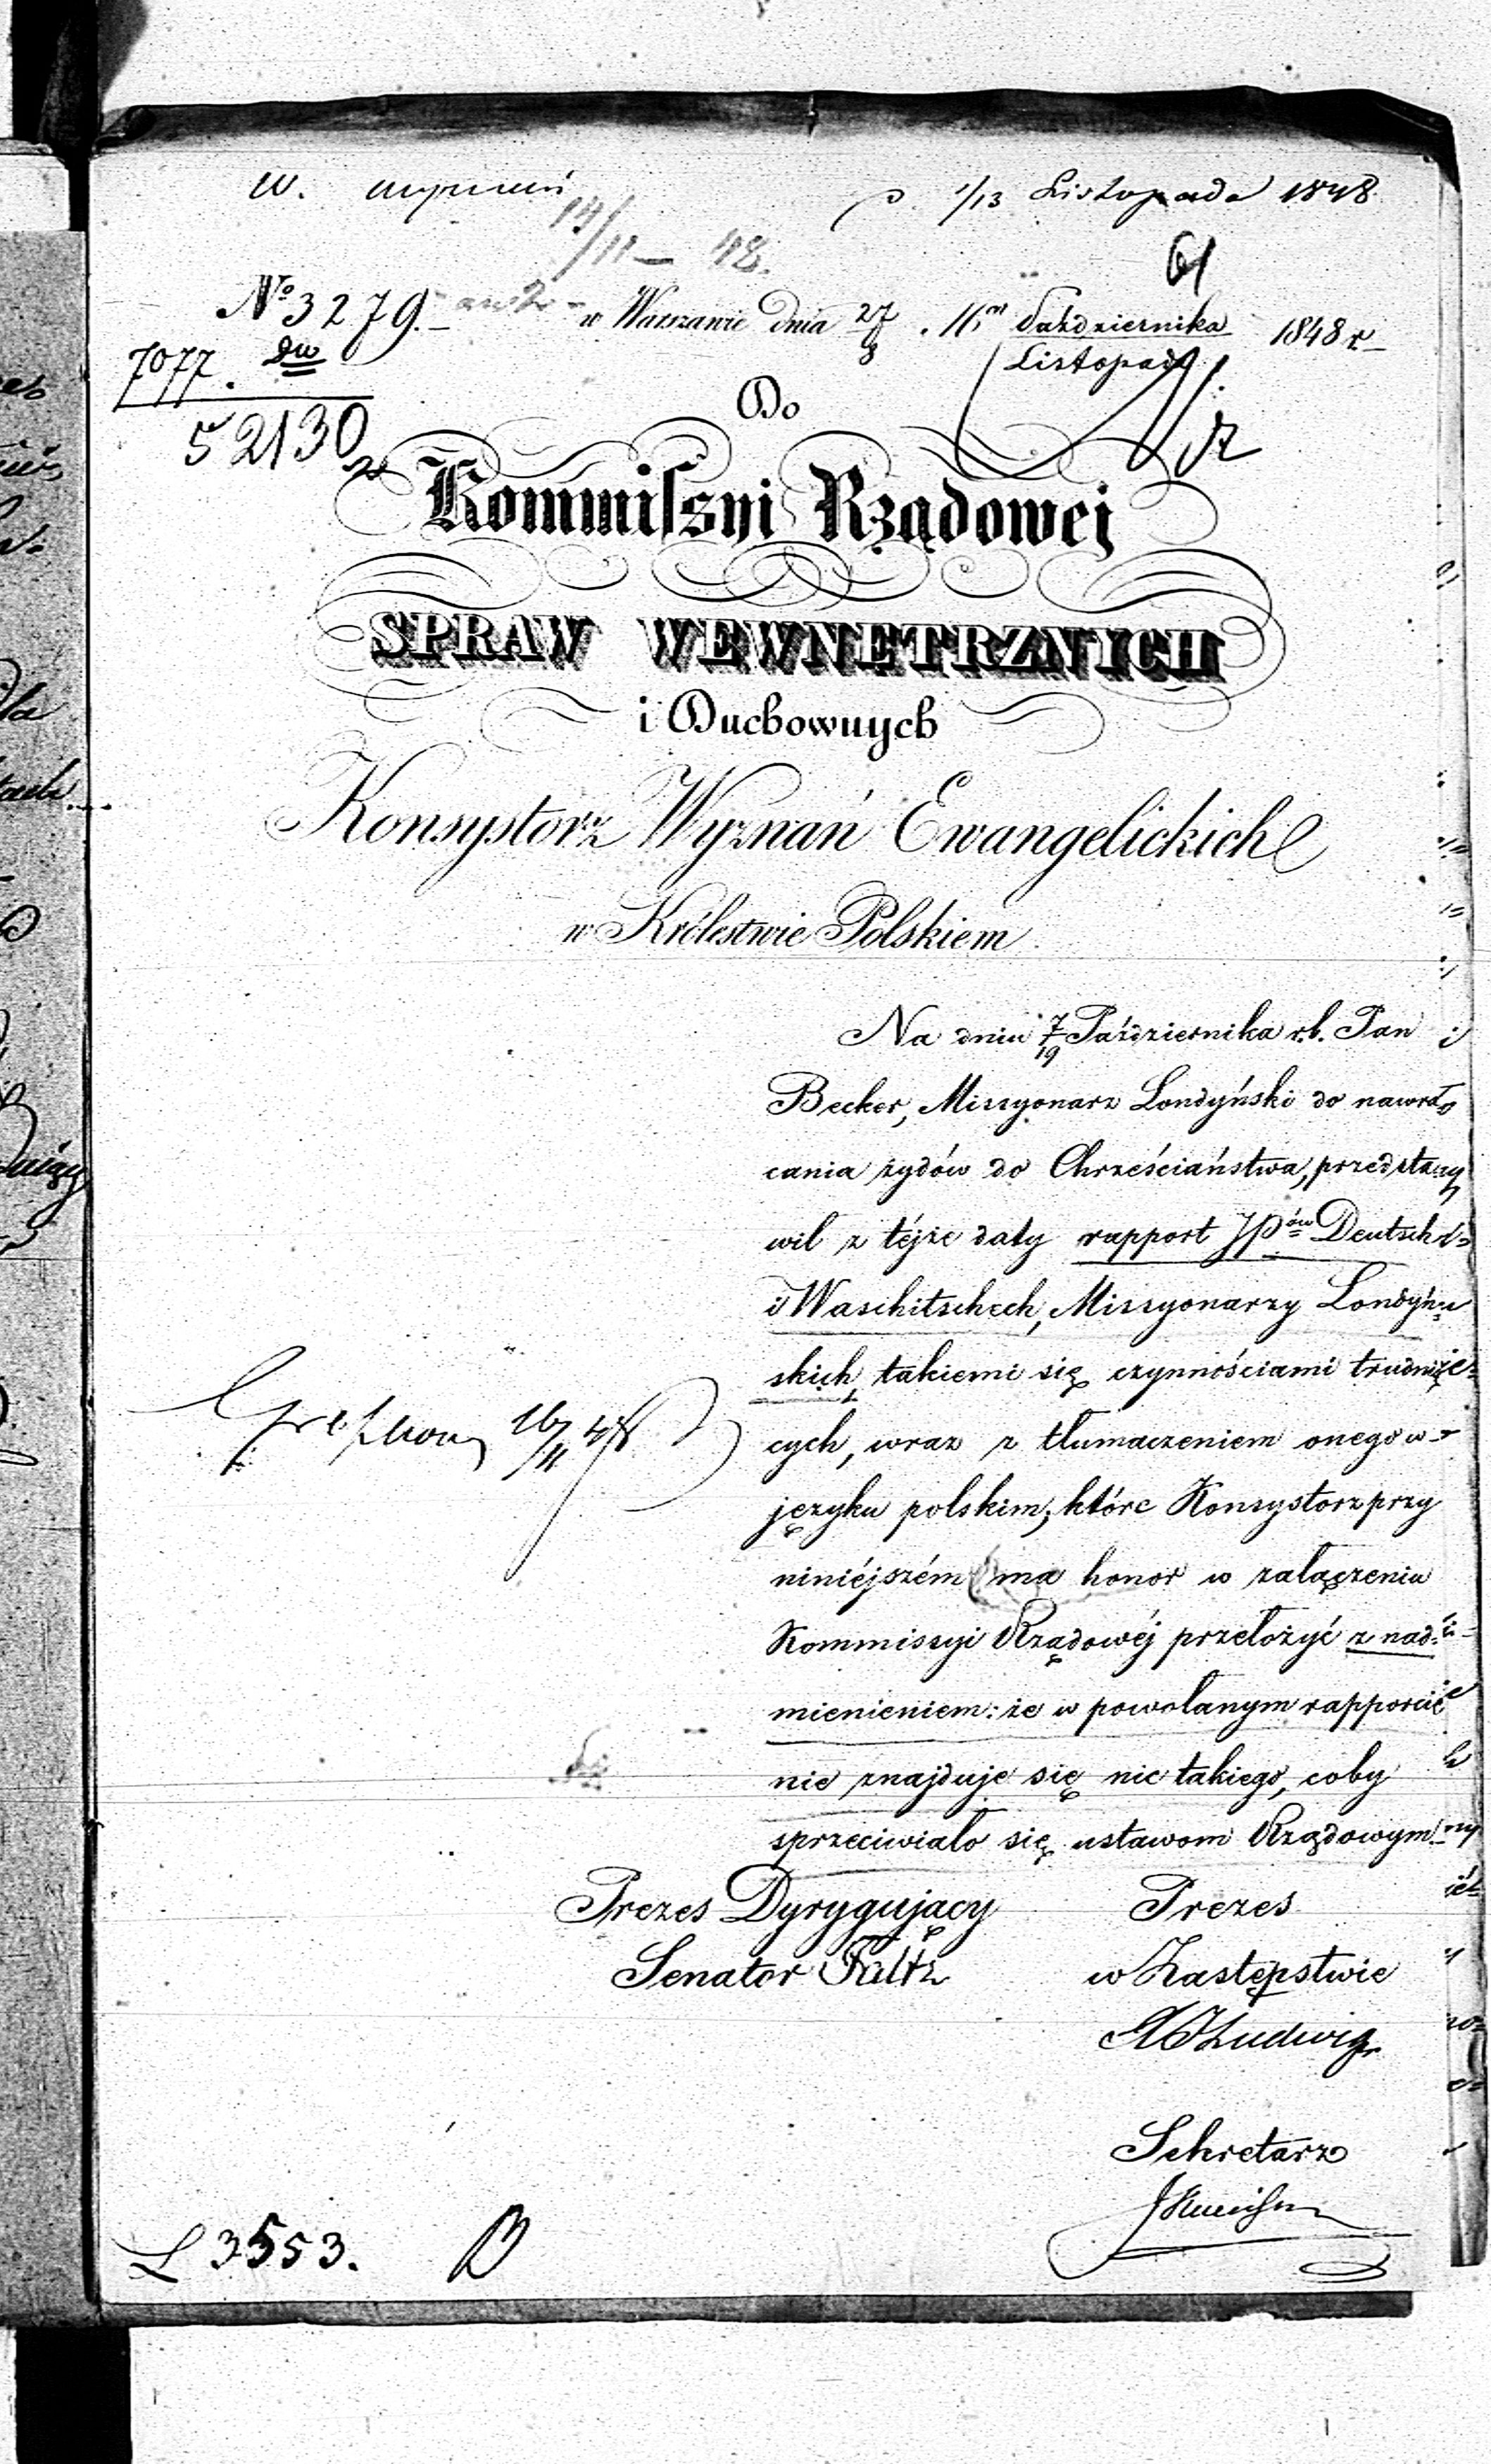 w.
d. 1/13 Listopada 1848
14/11 – 48.
61
№ 3279.– w Warszawie dnia 27/8 . 11m Października/Listopada 1848 r
7077.
52130
Do
Kommissyi Rządowej
SPRAW WEWNĘTRZNYCH
i Duchownych
Konsystorz Wyznań Ewangelickich
w Królestwie Polskiem
Na dniu 7/19 Października r.b. Pan
Becker, Missyonarz Londyński do nawra-
cania żydów do Chrześciaństwa, przedsta-
wił z téjże daty rapport JPów Deutsch
i Waschitscheck, Missyonarzy Londyń-
skich, takiemi się czynnościami trudnią-
cych, wraz z tłumaczeniem onego w
języku polskim; które Konsystorz przy
niniéjszém ma honor w załączeniu
Kommissyi Rządowéj przełożyć z nad-
mienieniem: że w powołanym rapporcie
nie znajduje się nic takiego, coby
sprzeciwiało się ustawom Rządowym.
16/11 48
Prezes Dyrygujący Prezes
Senator w Zastępstwie
Ludwig
Sekretarz
L 3553.